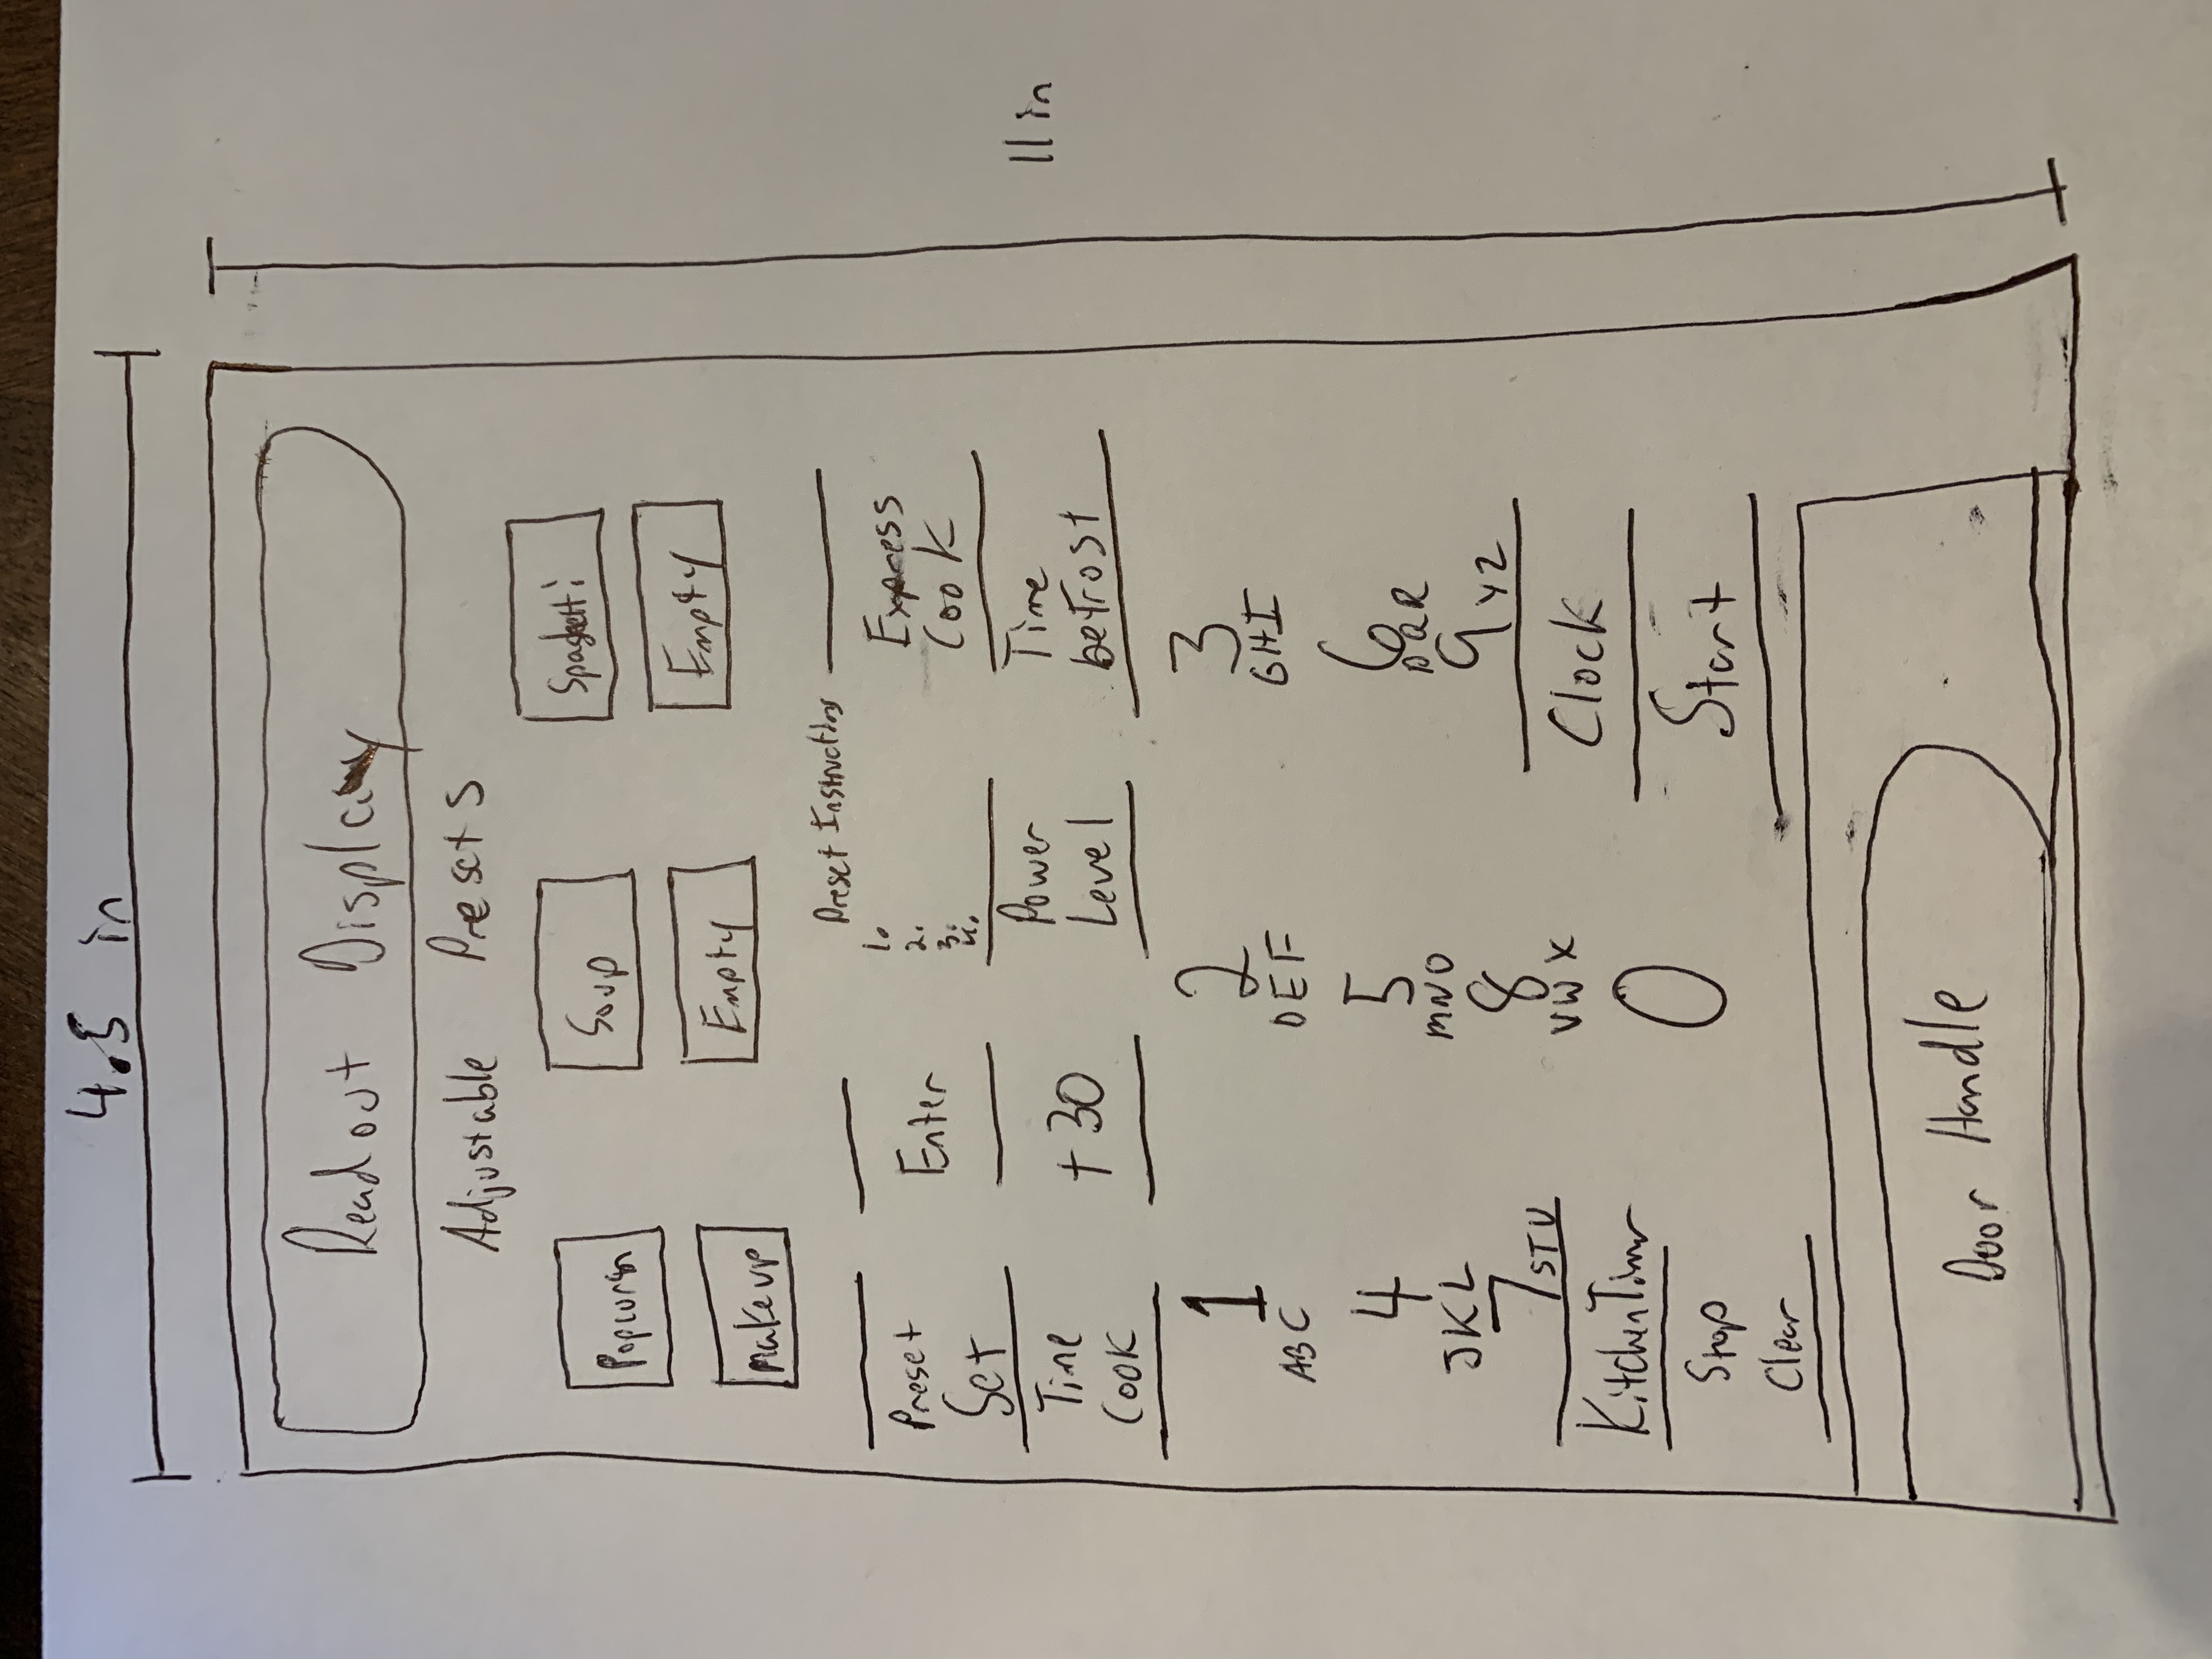 4.5 in
Readout Display
Adjustable Presets
Popcorn
Soup
Spaghetti
makeup
Empty
Empty
Preset Instructions
1.
2.
3.
4.
Preset
Set
Enter
Express
Cook
Time
Cook
+30
Power
Level
Time
Defrost
11 in
1
ABC
2
DEF
3
GHI
4
JKL
5
MNO
6
PQR
7 STU
8
VWX
9 YZ
Kitchen Timer
0
Clock
Stop
Clear
Start
Door Handle